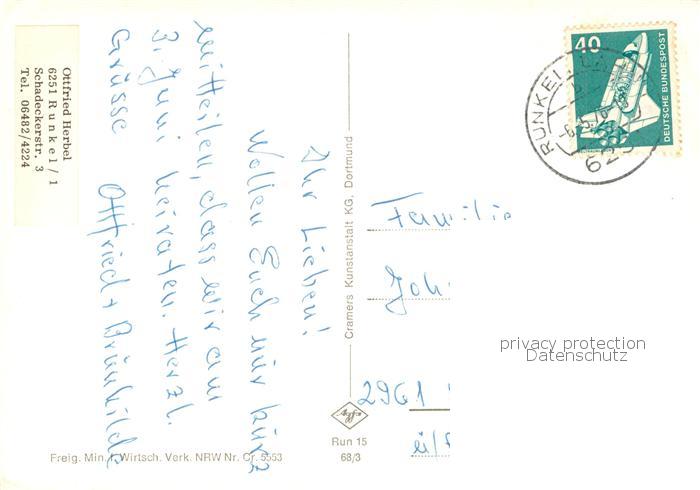 Ottfried Herbel
6251 Runkel/1
Schadeckerstr. 3
Tel. 06482/4224
Ihr Lieben!
Wollen Euch nur kurz
mitteilen, dass wir am
3. Juni heiraten. Herzl.
Grüsse Ottfried + Brünhilde
Freig. Min. f. Wirtsch. Verk. NRW Nr. Cr. 5553
Cramers Kunstanstalt KG, Dortmund
Agfa
Run 15
68/3
40
DEUTSCHE BUNDESPOST
RUNKEL
Familie
Joh
2961
privacy protection
Datenschutz